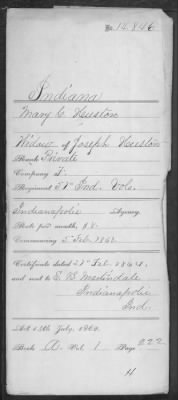 No. 14.846
Indiana
Mary C. Heuston
Widow of Joseph Heuston
Rank Private
Company I.
Regiment 57" Ind. Vols.
Indianapolis Agency.
Rate per month, $8.
Commencing 5 Feb. 1862
Certificate dated Feb. 1864,
and sent to E. B. Martindale
Indianapolis
Ind.
Act 14th July, 1862.
Book A. Vol. 1 Page 222